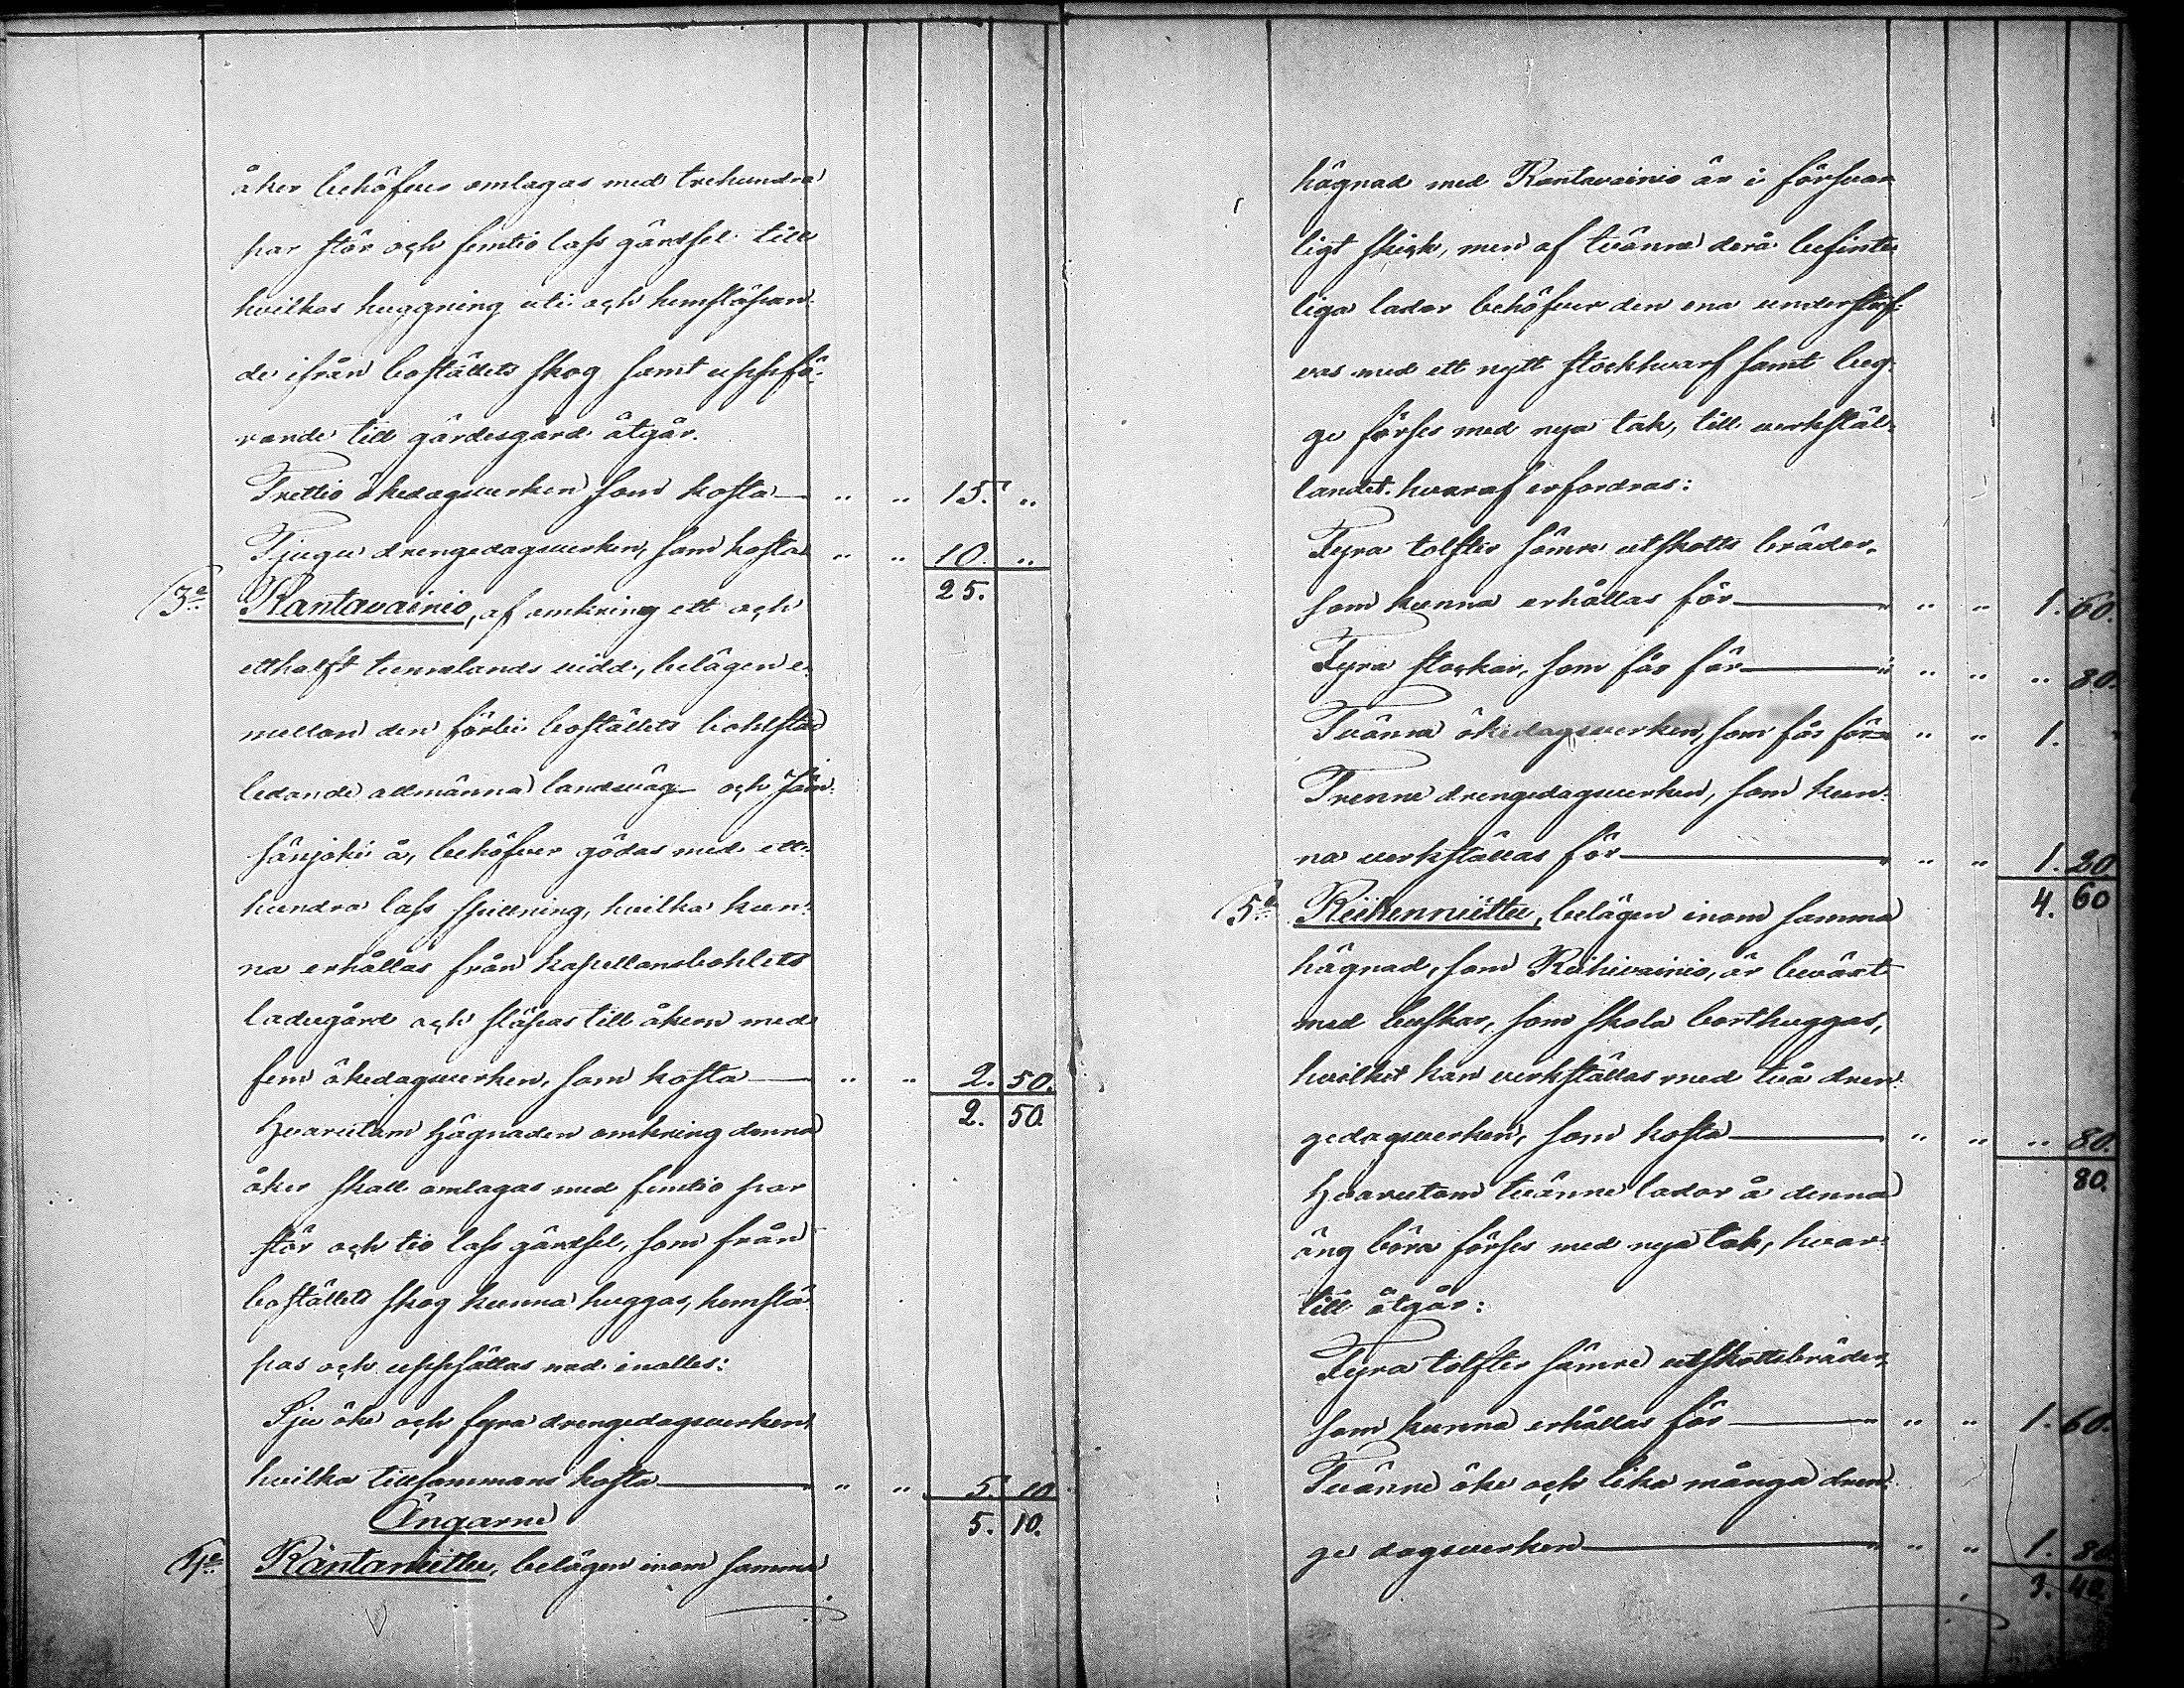 åker behöfves omlagas med trehundra
par stör och femtio lass gärdsel till
hvilkas huggning uti och hemsläpan-
de ifrån boställets skog samt uppfö-
rande till gärdesgård åtgår.
Trettio ökedagsverken som kosta — " " 15. "
Tjugu drengedagsverken, som kosta " " 10. "
25.
3e Rantavainio, af omkring ett och
etthalft tunnelands vidd, belägen e-
mellan den förbi boställets bohlstad
ledande allmänna landsväg och Jäm-
sänjoki å, behöfver gödas med ett-
hundra lass spillning, hvilka kun-
na erhållas från kapellansbohlets
ladugård och släpas till åkern med
fem ökedagsverken, som kosta — " " 2. 50.
2. 50.
Hvarutom hägnaden omkring denna
åker skall omlagas med femtio par
stör och tio lass gärdsel, som från
boställets skog kunna huggas, hemslä-
pas och uppsättas med inalles:
Sju öke och fyra drengedagsverken
hvilka tillsammans kosta — " " 5. 10
Ängarne 5. 10.
4e Rantaniittu, belägen inom samma
hägnad med Rantavainio är i försvar
ligt skick, men af tvänne derå befint-
liga lador behöfver den ena understof-
vas med ett nytt stockhvarf samt beg-
ge förses med nya tak, till verkstäl-
landet hvaraf erfordras:
Fyra tolfter sämre utskotts bräder,
som kunna erhållas för — " " 1. 60.
Fyra stockar, som fås för — " " " 80.
Tvänne ökedagsverken, som fås för — " " 1. "
Trenne drengedagsverken, som kun-
na verkställas för — " " 1. 20
4. 60
5e Riihenniittu, belägen inom samma
hägnad, som Riihivainio, är beväxt
med buskar, som skola borthuggas,
hvilket kan verkställas med två dren-
gedagsverken, som kosta — " " " 80.
80.
Hvarutom tvänne lador å denna
äng böra förses med nya tak, hvar-
till åtgår:
Fyra tolfter sämre utskottsbräder,
som kunna erhållas för — " " 1. 60.
Tvänne öke och lika många dren-
ge dagsverken — " " 1. 80
3. 40.